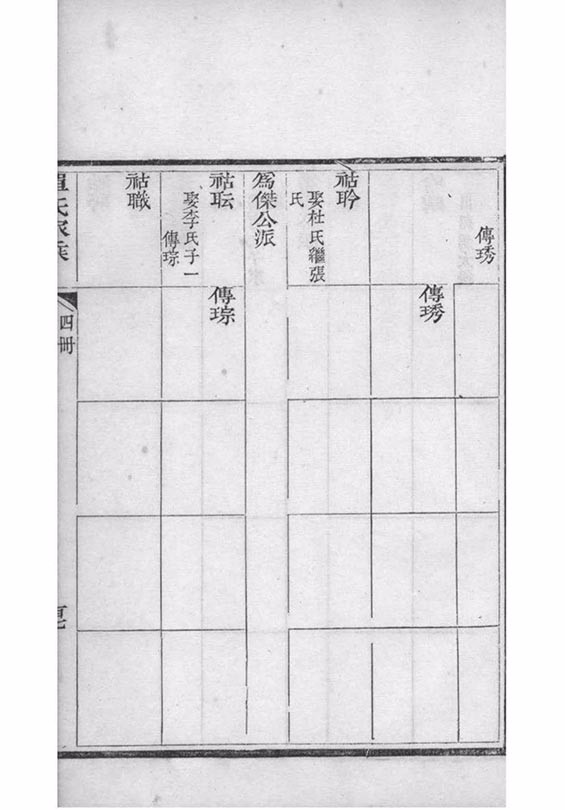 傳琇
傳琇
祜聆
娶杜氏繼張
氏
爲傑公派
祜耺
娶李氏子一
傳琮
傳琮
祜職
四冊